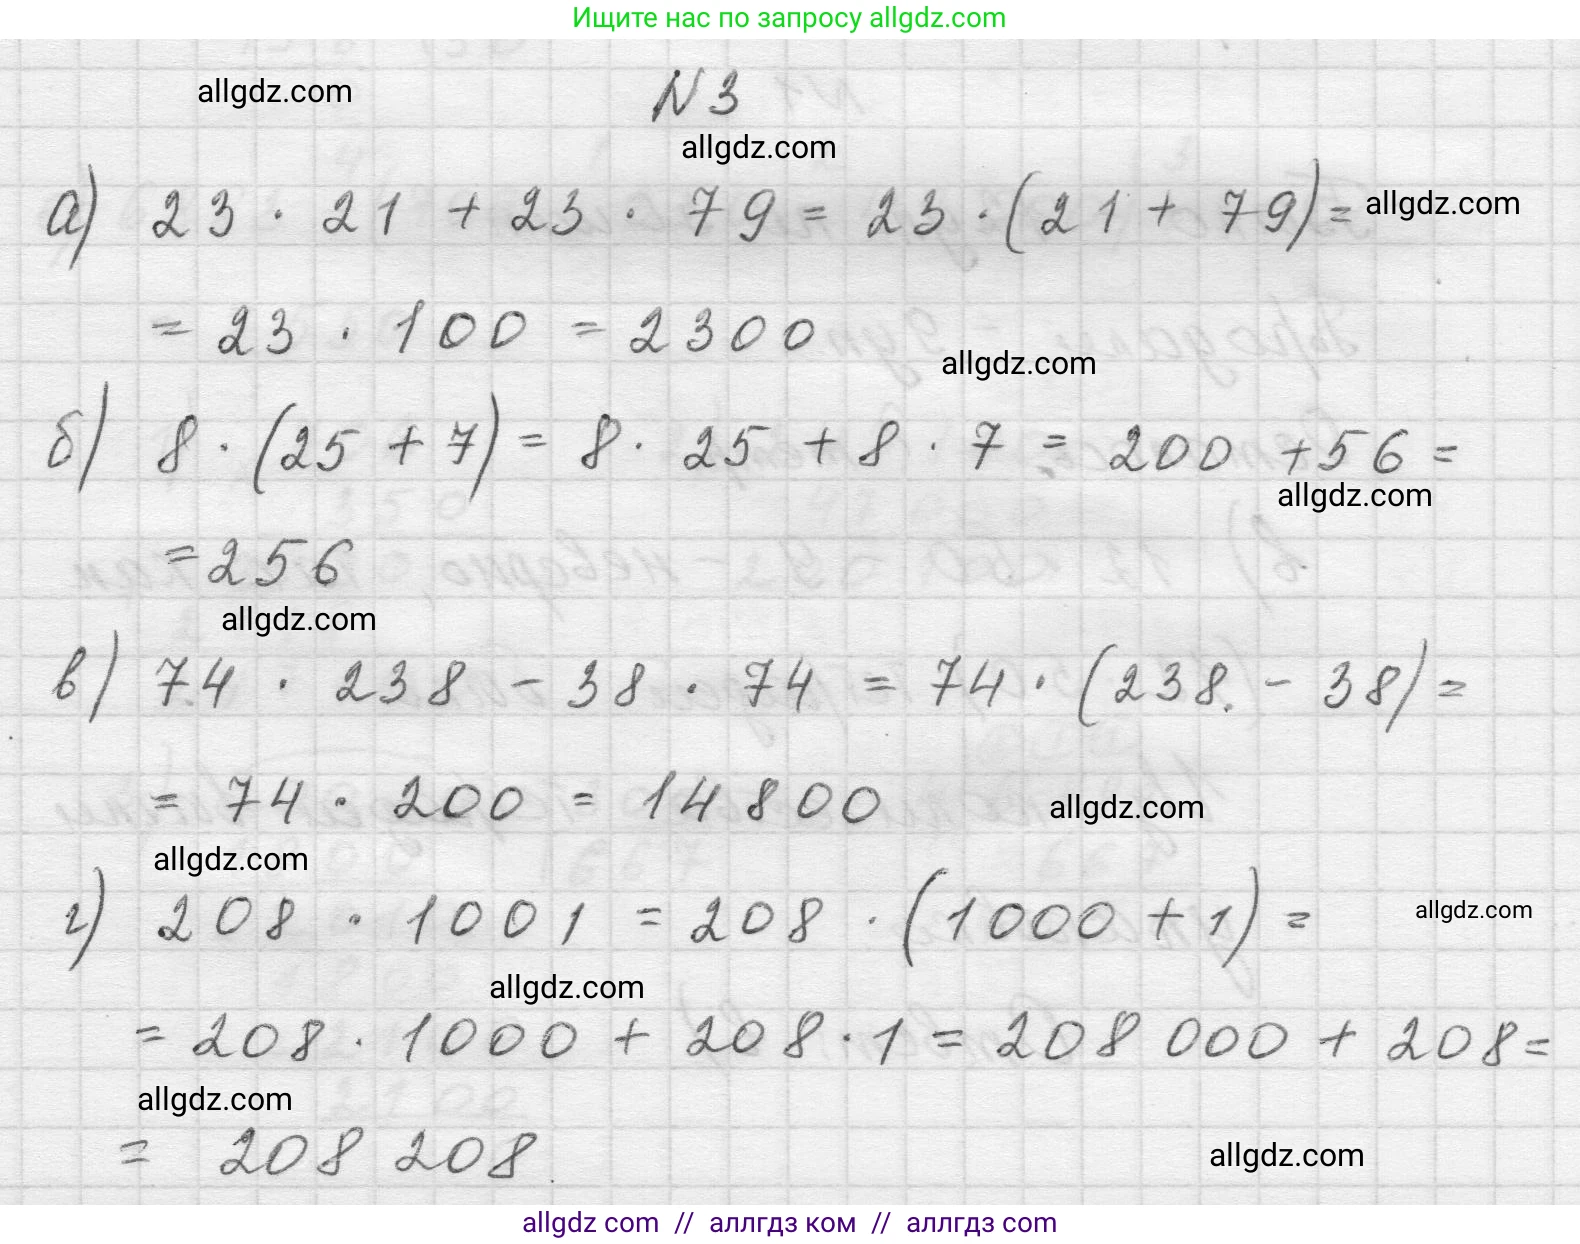 Ищите нас по запросу allgdz.com
allgdz.com
N 3
allgdz.com
а) 23 · 21 + 23 · 79 = 23 · (21 + 79) =
allgdz.com
= 23 · 100 = 2300
allgdz.com
б) 8 · (25 + 7) = 8 · 25 + 8 · 7 = 200 + 56 =
allgdz.com
= 256
allgdz.com
в) 74 · 238 - 38 · 74 = 74 · (238 - 38) =
= 74 · 200 = 14800
allgdz.com
allgdz.com
г) 208 · 1001 = 208 · (1000 + 1) =
allgdz.com
allgdz.com
= 208 · 1000 + 208 · 1 = 208 000 + 208 =
allgdz.com
= 208 208
allgdz.com
allgdz com // аллгдз ком // аллгдз com